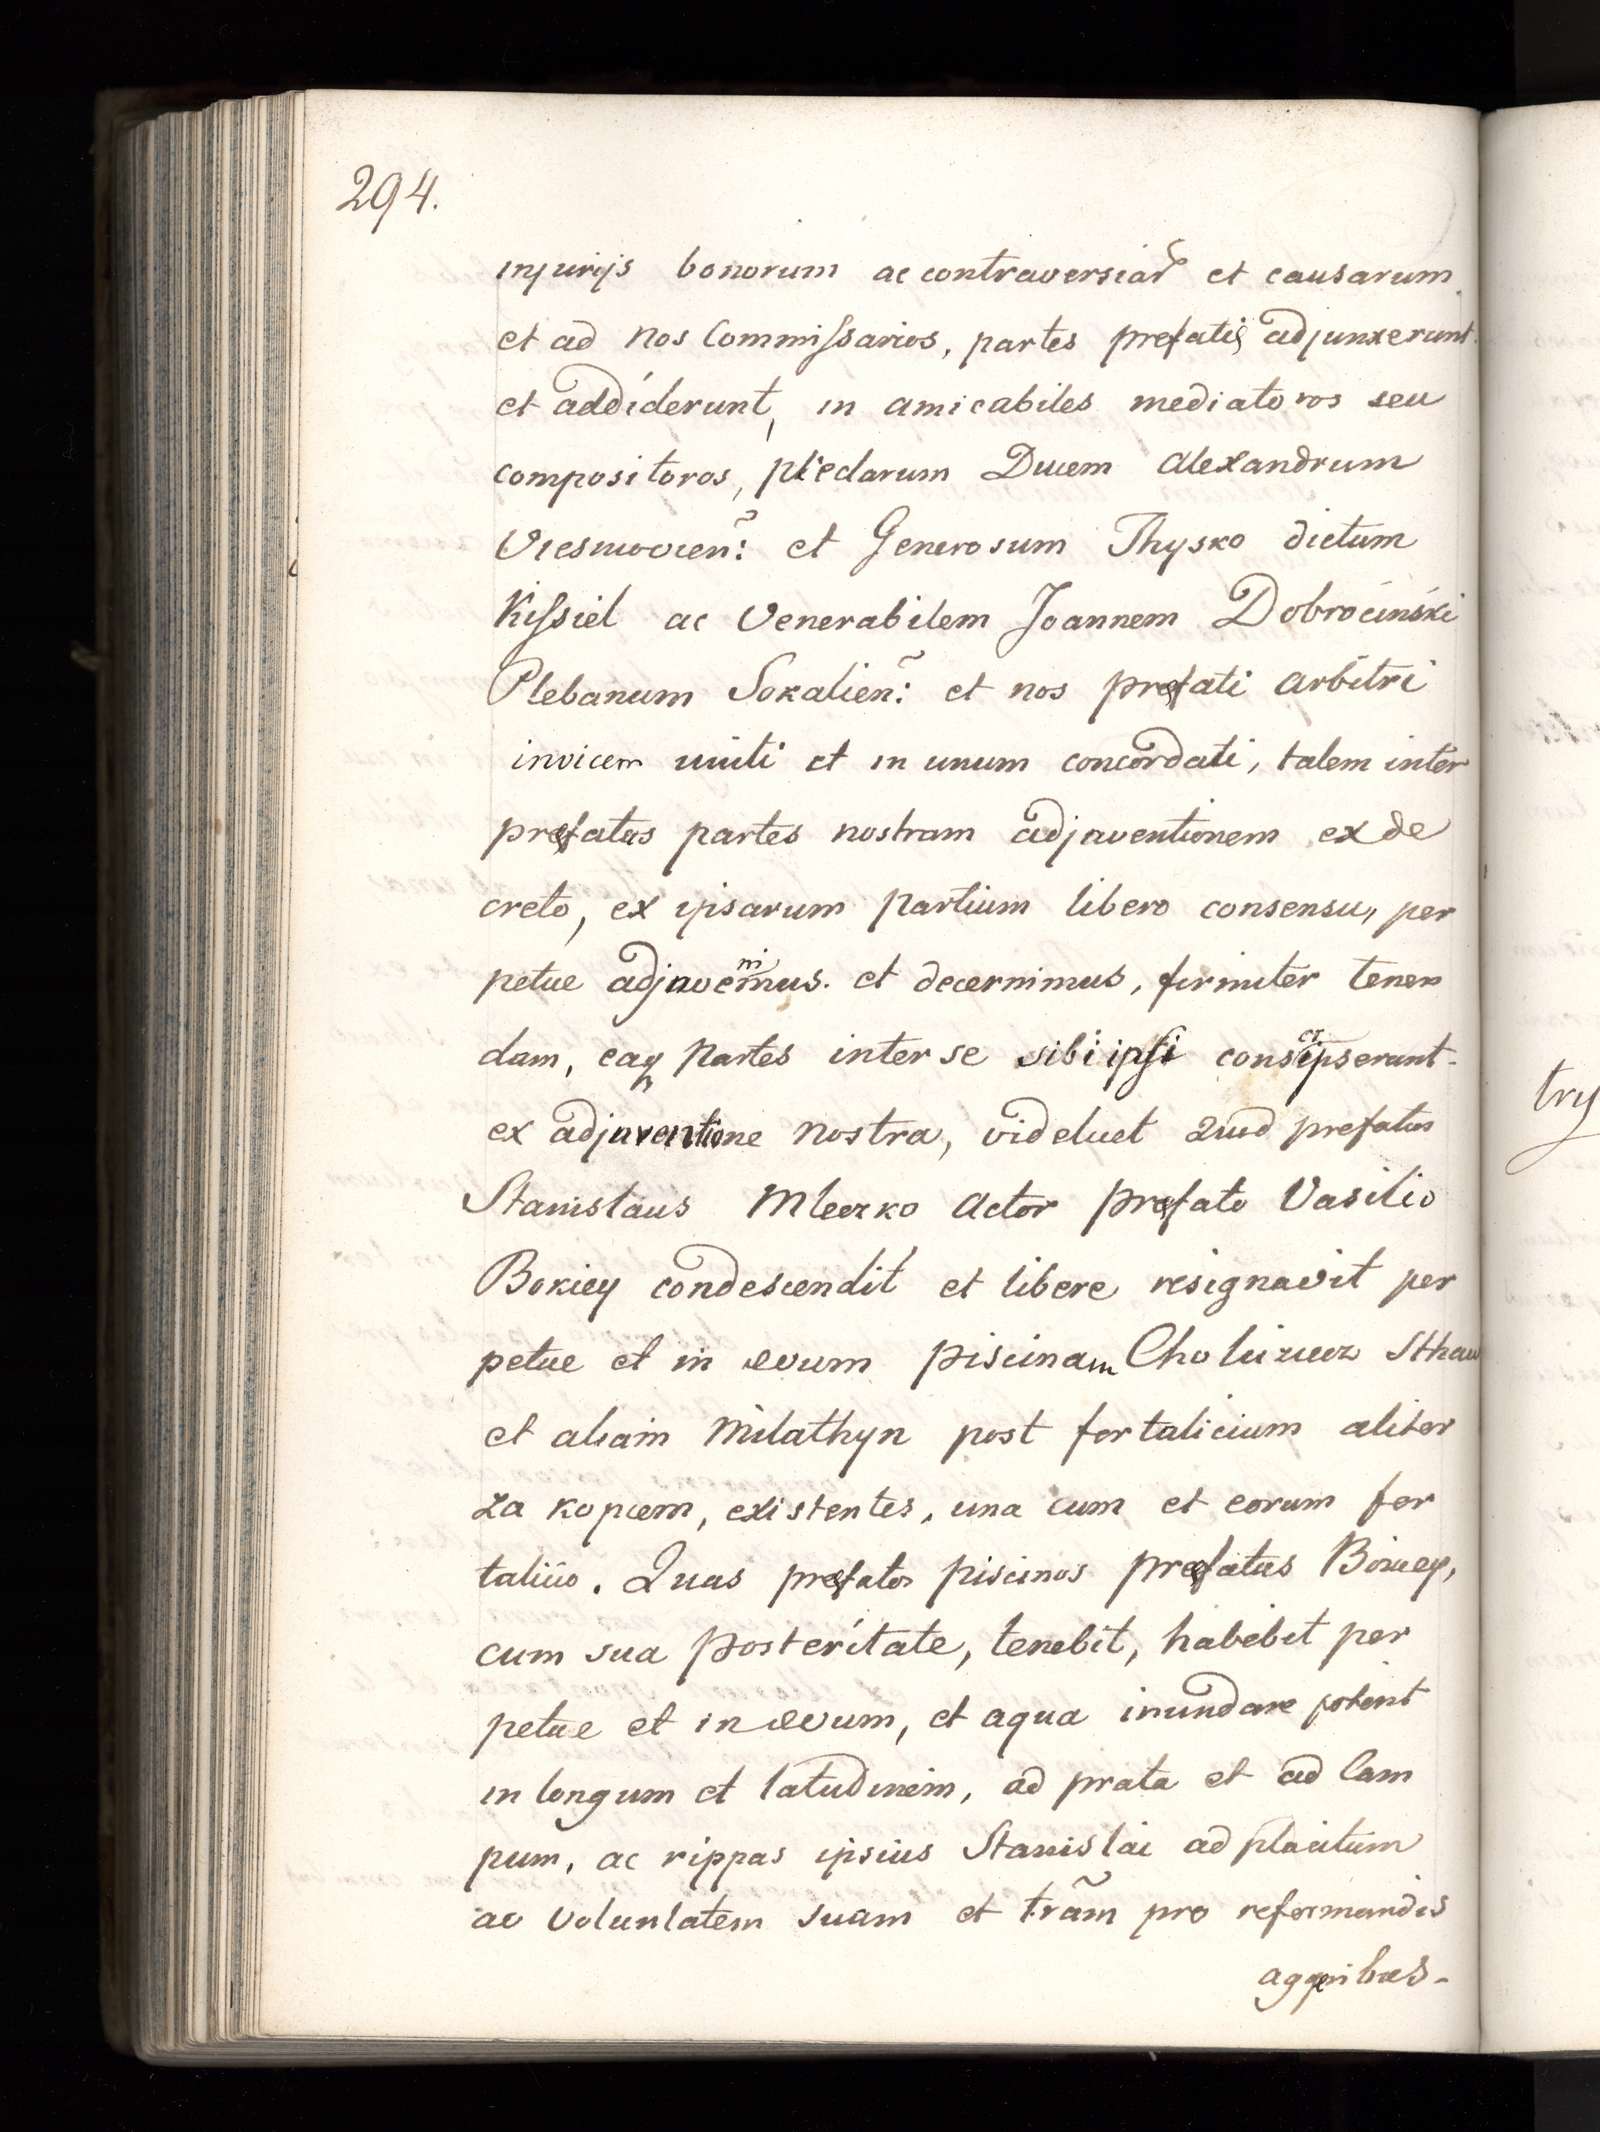 294.
injurijs bonorum ac contraversiar̃ et causarum
et ad nos Commissarios, partes prefatis adjunxerunt
et addiderunt, in amicabiles mediatoros seu
compositoros, Ducem Alexandrum
et Generosum Thysko dictum
Kissiel ac Venerabilem Joannem Dobrociński
Plebanum Sokalien̄: et nos prefati arbitri
invicem uniti et in unum concordati, talem inter
prefatas partes nostram adjnventionem ex de
creto, ex ipsarum partium libero consensu, per
petue adjnvenimus. et decernimus, firmiter tenen
dam, eaq partes inter se sibi ipsi conscripserunt
ex adjnventione nostra, videlicet quod prefatus
Stanislaus Mleczko Actor prefato Vasilio
Bokiey condescendit et libere resignavit per
petue et in evum piscinam
et aliam Milathyn post fortalicium aliter
za kopcem, existentes, una cum et eorum for
talicio. Quas prefatas piscinos prefatus Bokiey,
cum sua posteritate, tenebit, habebit per
petue et in evum, et aqua inundare poterit
in longum et latudinem, ad prata et ad Cam
pum, ac rippas ipsius Stanislai ad placitum
ac voluntatem suam et tr̃am pro reformandis
aggeribus-
try